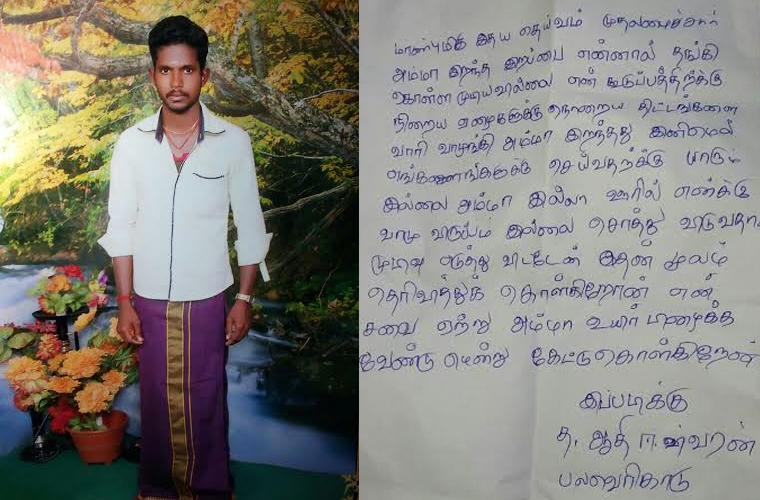 மாண்புமிகு இதய தெய்வம் முதலமைச்சர்
அம்மா இறந்த இறப்பை என்னால் தங்கி
கொள்ள முடியவில்லை என் குடும்பத்திற்க்கு
நிறைய ஏழைகளுக்கு திட்டங்களை
வாரி வாழங்கி அம்மா இறந்தது இனிமேல்
செய்வதற்க்கு யாரும்
இல்லை அம்மா இல்லா ஊரில் எனக்கு
வாழ விருப்பம் இல்லை
முடிவு எடுத்து விட்டேன் இதன் மூலம்
தெரிவித்துக் கொள்கிறேன் என்
ஏற்று அம்மா உயிர் பிழைக்க
வேண்டுமென்று கேட்டுகொள்கிறேன்
இப்படிக்கு
த.